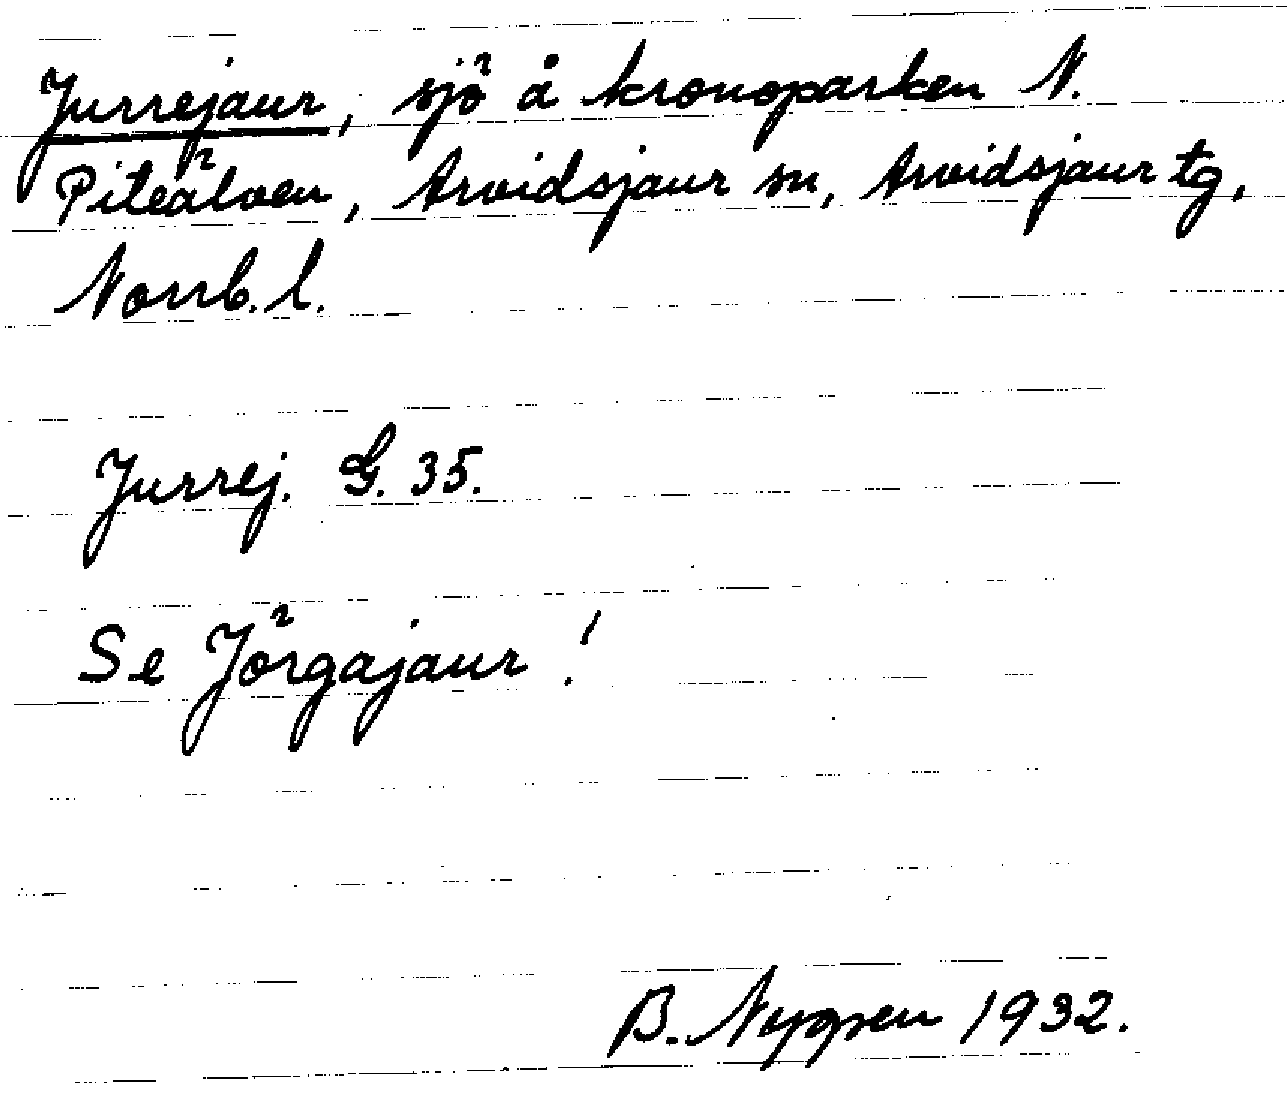 Jurrejaur, sjö å kronoparken N.
Piteälven, Arvidsjaur sn, Arvidsjaur tg,
Norrb. l.
Jurrej. G. 35.
Se Jörgajaur!
B. Nygren 1932.